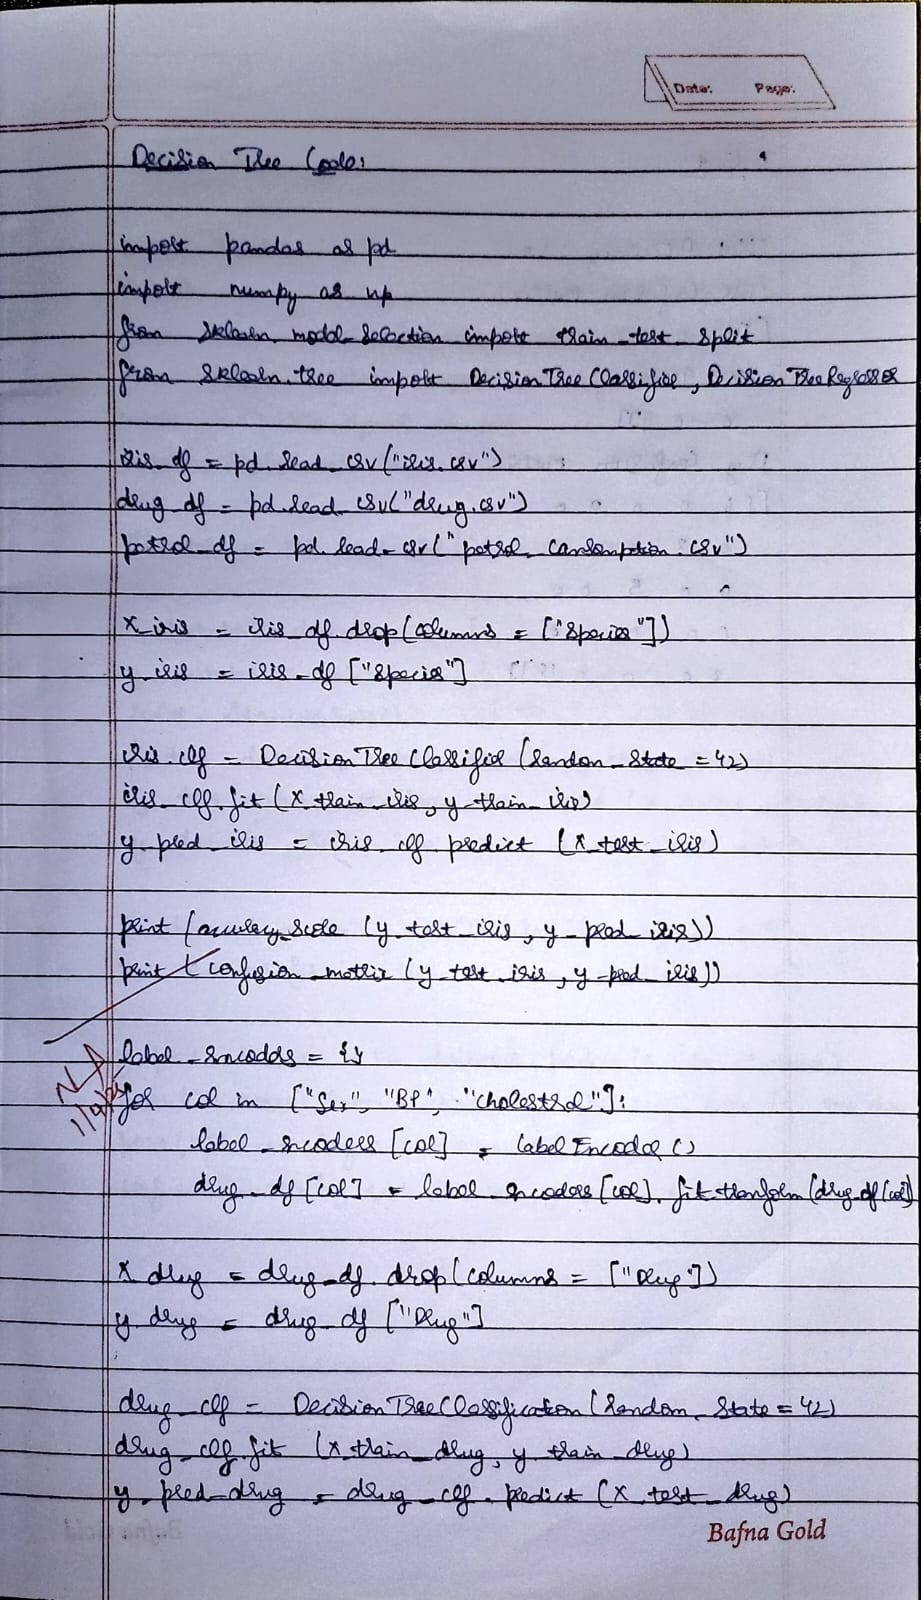 Date: Page:
Decision Tree Code:
import pandas as pd
import numpy as np
from sklearn. model_selection import train_test_split
from sklearn.tree import DecisionTreeClassifier, DecisionTreeRegressor
iris_df = pd.read_csv("iris.csv")
drug_df = pd.read_csv("drug.csv")
petrol_df = pd.read_csv("petrol_consumption.csv")
X_iris = iris_df.drop(columns = ["Species"])
y_iris = iris_df ["Species"]
iris_clf = DecisionTreeClassifier (random_state = 42)
iris_clf.fit (X_train_iris, y_train_iris)
y_pred_iris = iris_clf.predict (X_test_iris)
print (accuracy_score (y_test_iris, y_pred_iris))
print (confusion_matrix (y_test_iris, y_pred_iris))
label_encoders = {}
for col in ["Sex", "BP", "Cholestrol"]:
label_encoders [col] = LabelEncoder ()
drug_df [col] = label_encoders [col]. fit_transform (drug_df [col])
X_drug = drug_df. drop (columns = ["Drug"])
y_drug = drug_df ["Drug"]
drug_clf = DecisionTreeClassification (random_state = 42)
drug_clf.fit (X_train_drug, y_train_drug)
y_pred_drug = drug_clf.predict (X_test_drug)
Bafna Gold